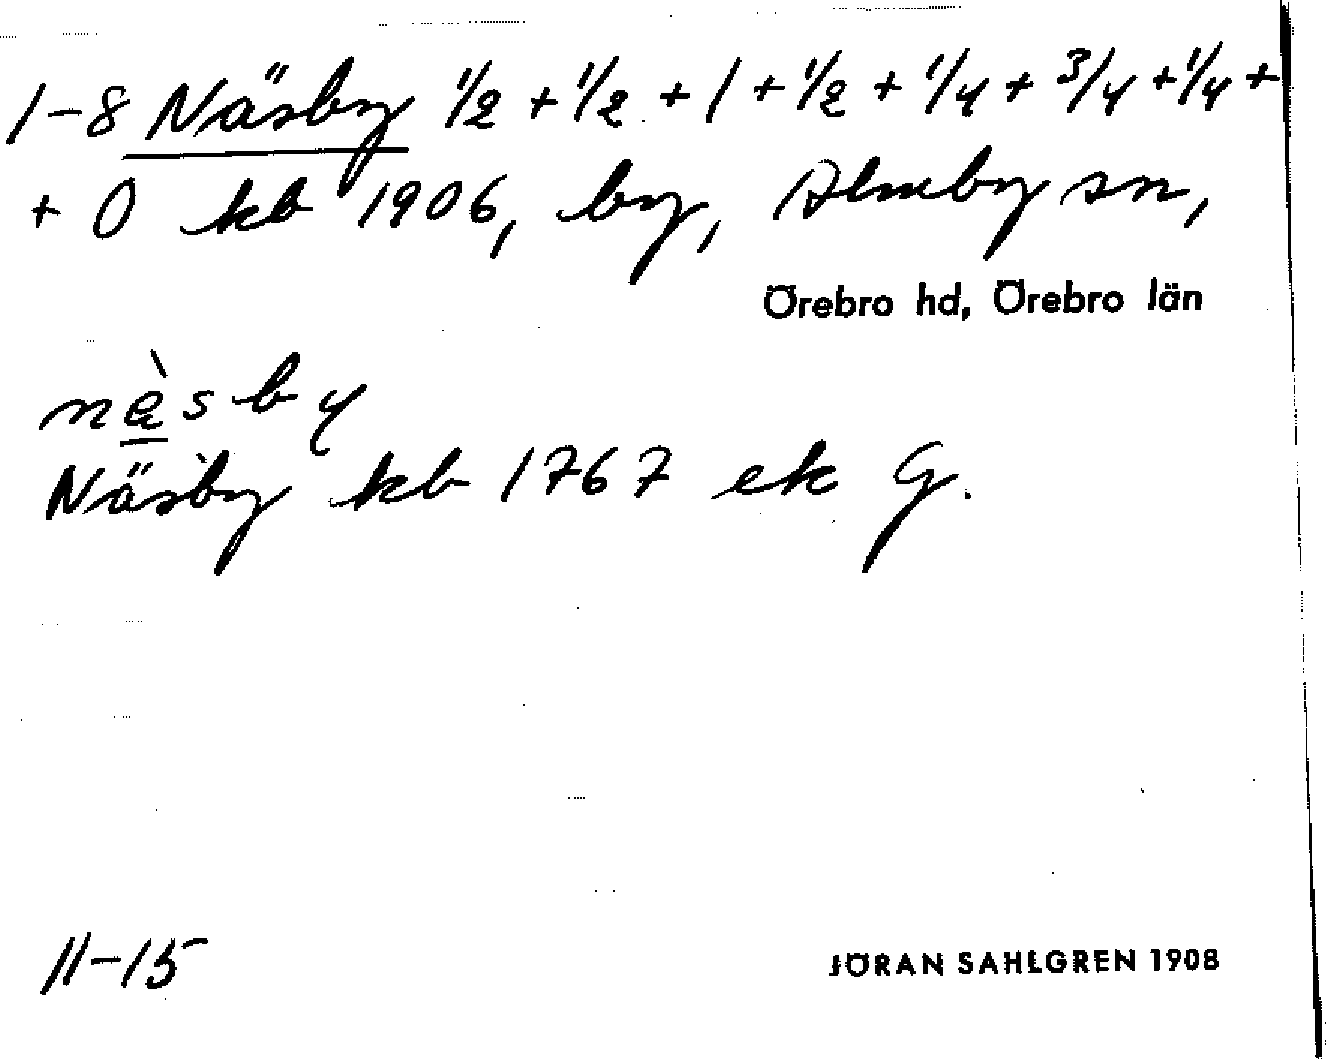 1-8 Näsby 1/2 + 1/2 + 1 + 1/2 + 1/4 + 3/4 + 1/4 +
+ 0 kb 1906, by, Almby sn,
Örebro hd, Örebro län
nèsby
Näsby kb 1767 ek G.
11-15
JÖRAN SAHLGREN 1908